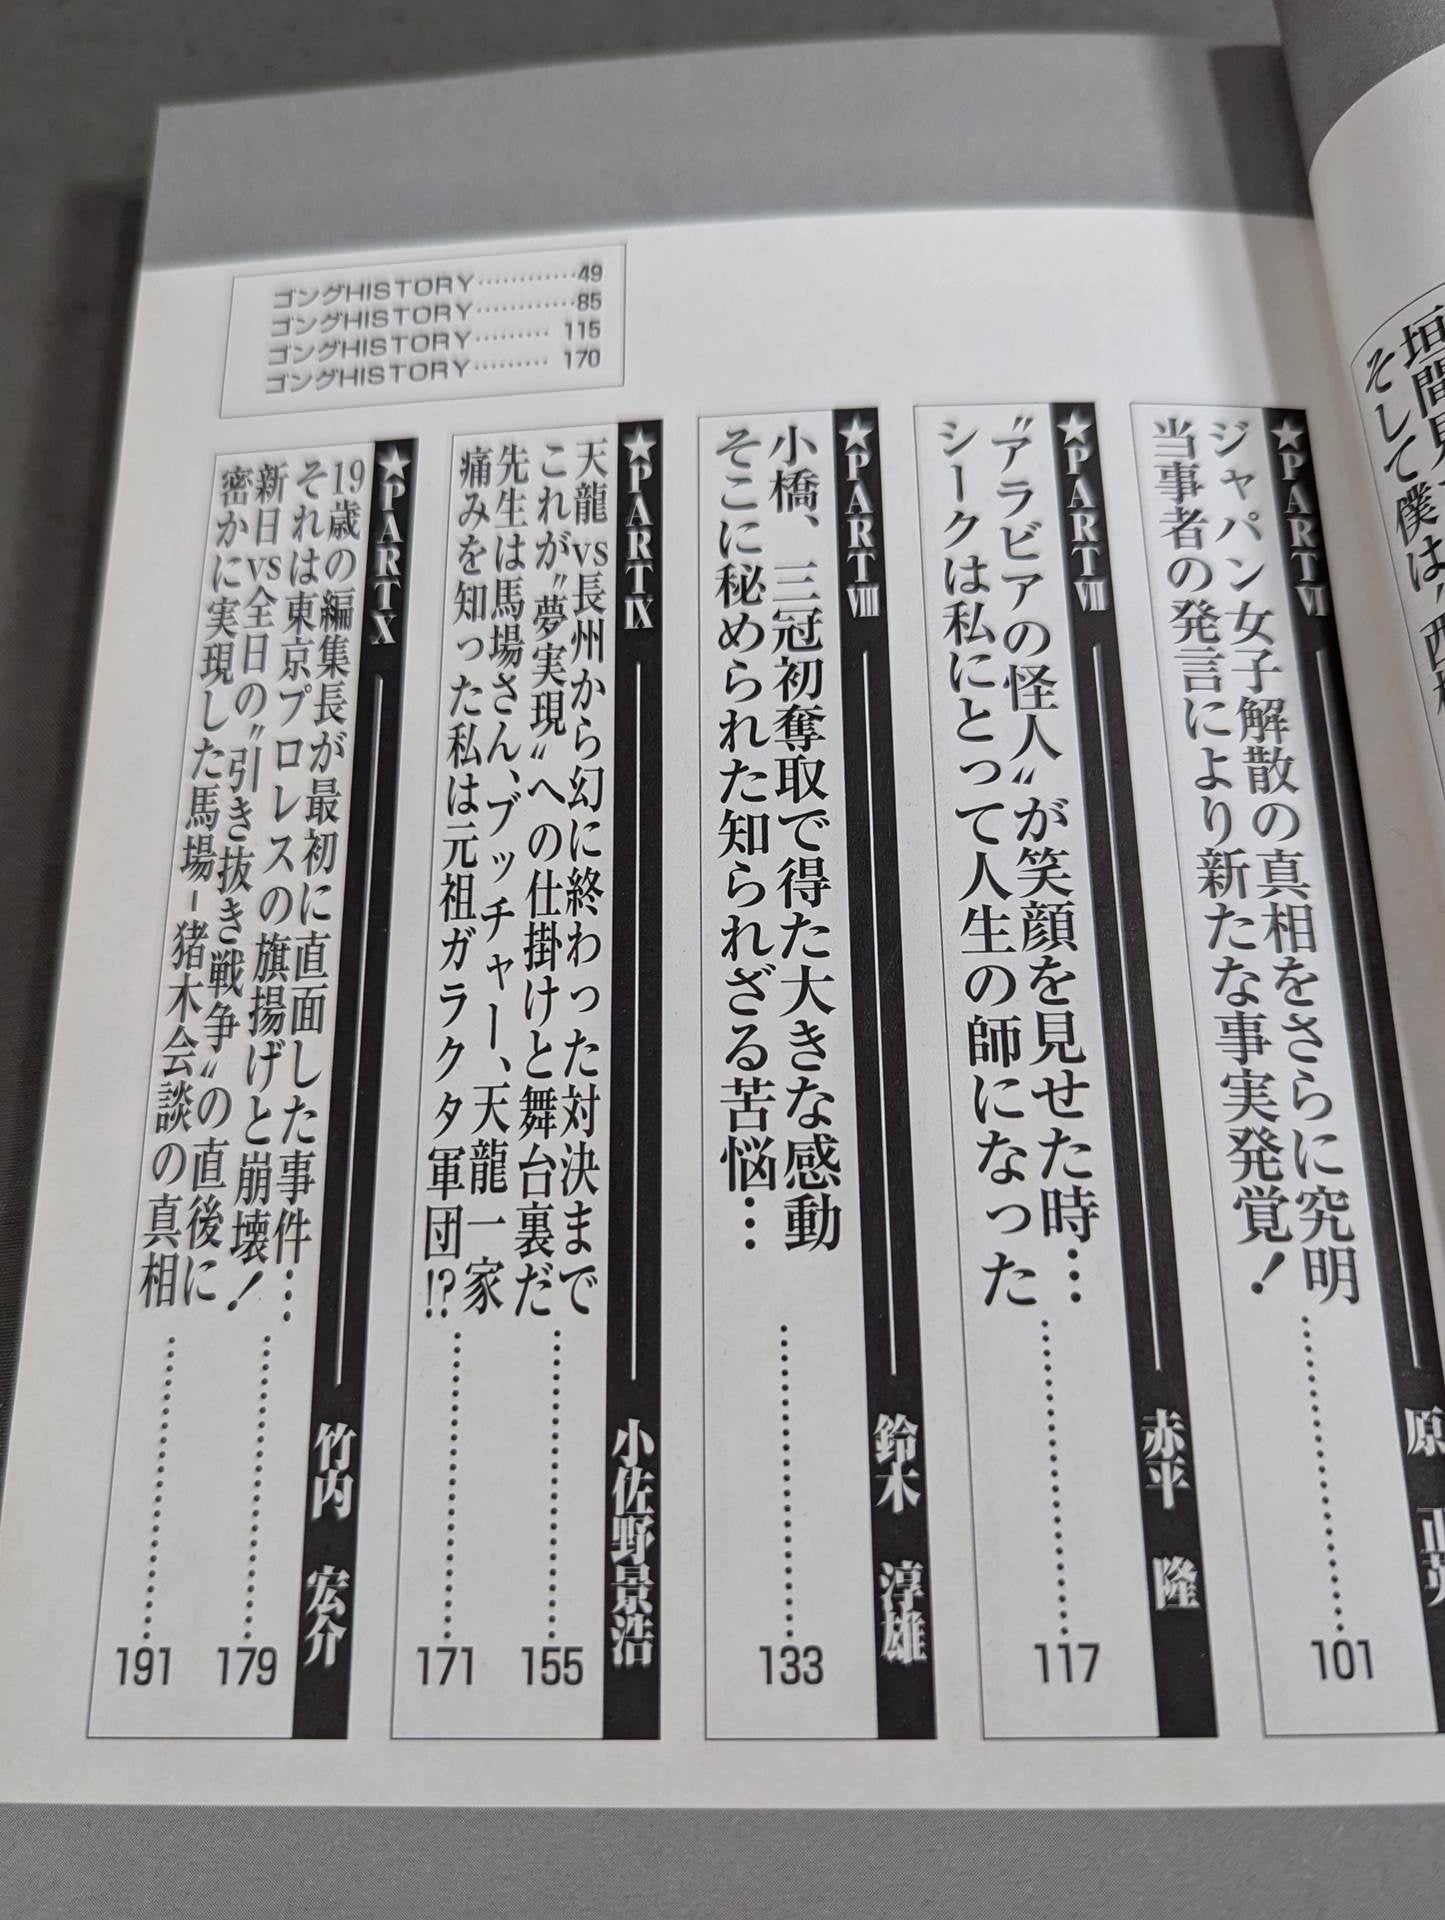 垣間見
そして僕は〝西村
★PART Ⅵ
原 正英
ジャパン女子解散の真相をさらに究明
当事者の発言により新たな事実発覚!
101
★PART Ⅶ
赤平 隆
〝アラビアの怪人〟が笑顔を見せた時…
シークは私にとって人生の師になった
117
★PART Ⅷ
鈴木 淳雄
小橋、三冠初奪取で得た大きな感動
そこに秘められた知られざる苦悩…
133
★PART Ⅸ
小佐野景浩
天龍vs長州から幻に終わった対決まで
これが〝夢実現〟への仕掛けと舞台裏だ
155
先生は馬場さん、ブッチャー、天龍一家
痛みを知った私は元祖ガラクタ軍団!?
171
★PART Ⅹ
竹内 宏介
19歳の編集長が最初に直面した事件…
それは東京プロレスの旗揚げと崩壊!
179
新日vs全日の〝引き抜き戦争〟の直後に
密かに実現した馬場-猪木会談の真相
191
ゴングHISTORY…………49
ゴングHISTORY…………85
ゴングHISTORY……… 115
ゴングHISTORY……… 170